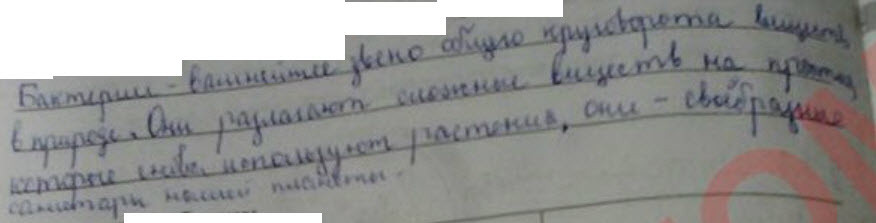 Бактерии - важнейшее звено общего круговорота веществ
в природе. Они разлагают сложные веществ на простые,
которые снова используют растения, они - своебразные
санитары нашей планеты.